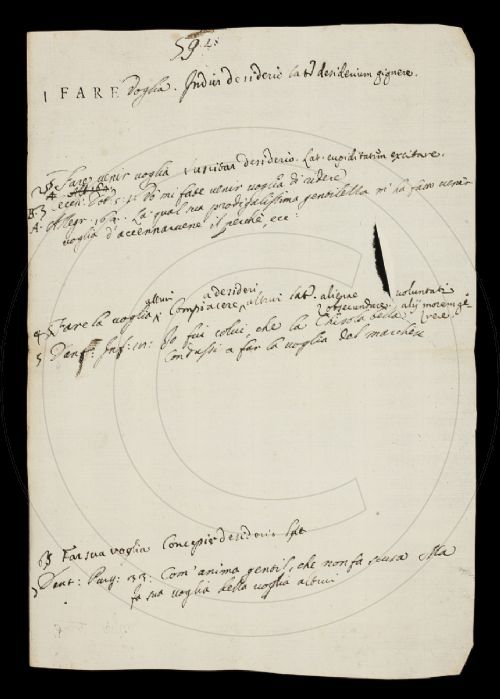 594
1 FARE Voglia. Indur desiderio lat. desiderium gignere.
2 § Fare venir voglia suscitar desiderio. Lat. cupiditatem excitare.
B. 3 ecch: Dot: 5: 15 Voi mi fate venir voglia di ridere
A. Allegr: 162: La qual sua prodigalissima gentilezza mi ha fatto venir
voglia d'accennarvene il perchè, ecc:
4 § Fare la voglia altrui, Compiacere a desideri altrui lat. alienae voluntati
obsecundare, alij morem gerere.
5 Dant: Inf: 18: Io fui colui, che la Ghisola bella
Condussi a far la voglia del marchese
6 § Far sua voglia Concepir desiderio Lat
7 Dant: Purg: 33: Com' anima gentil, che non fa scusa Ma
fa sua voglia della voglia altrui